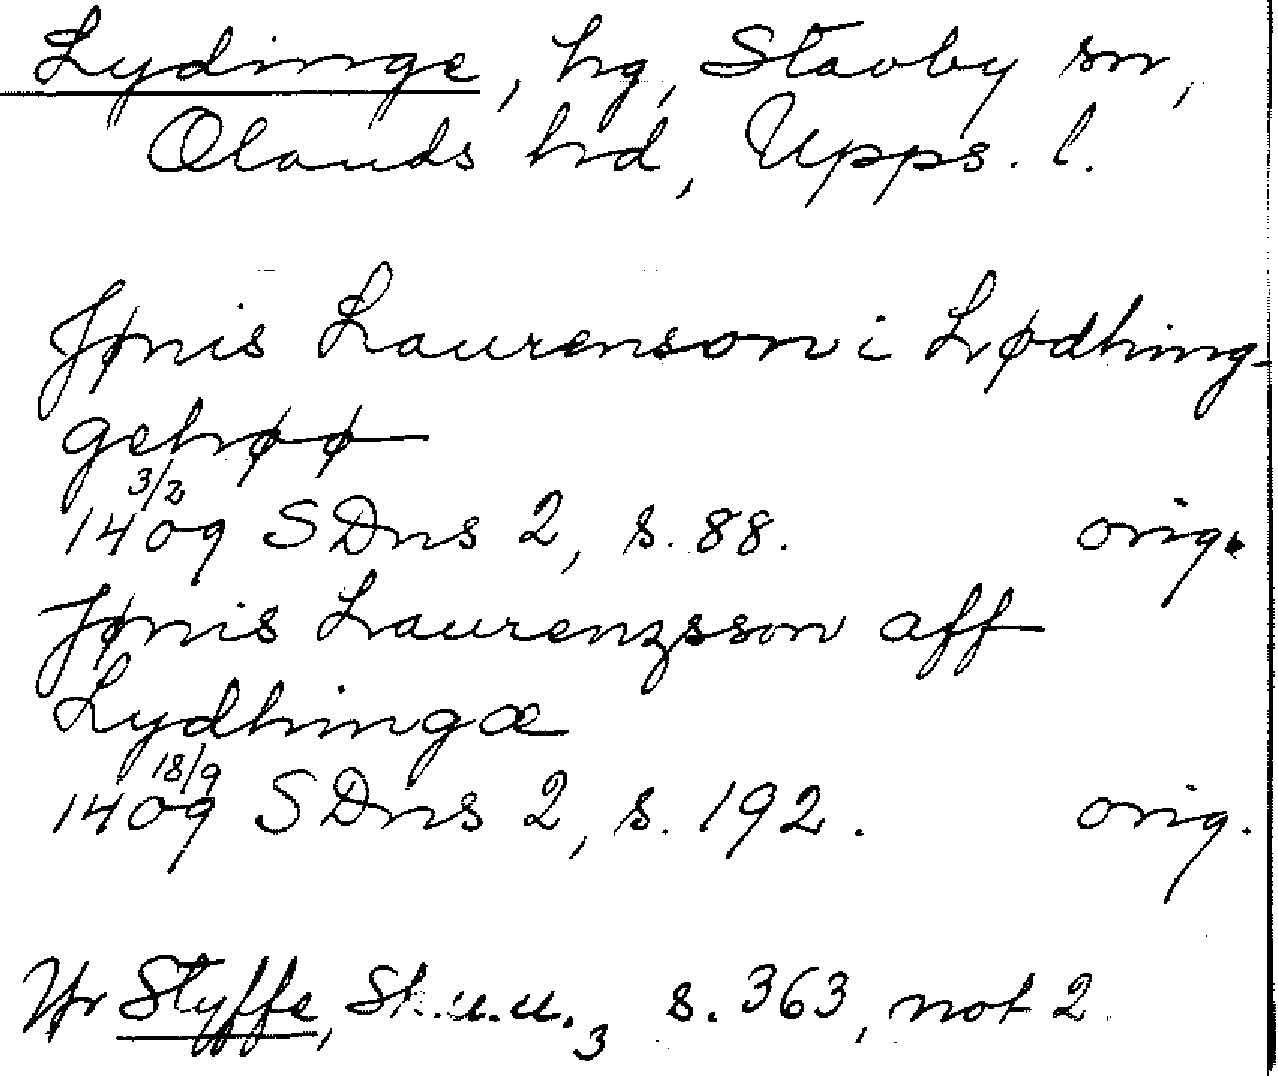 Lydinge, hg, Stavby sn,
Olands hd, Upps. l.
Jønis Laurenson i Lødhing-
gehøø
3/2
1409 SDns 2, s. 88. orig.
Jønis Laurenzsson aff
Lydhingæ
18/9
1409 SDns 2, s. 192. orig.
Jfr Styffe, Sk.u.u.3 s. 363, not 2